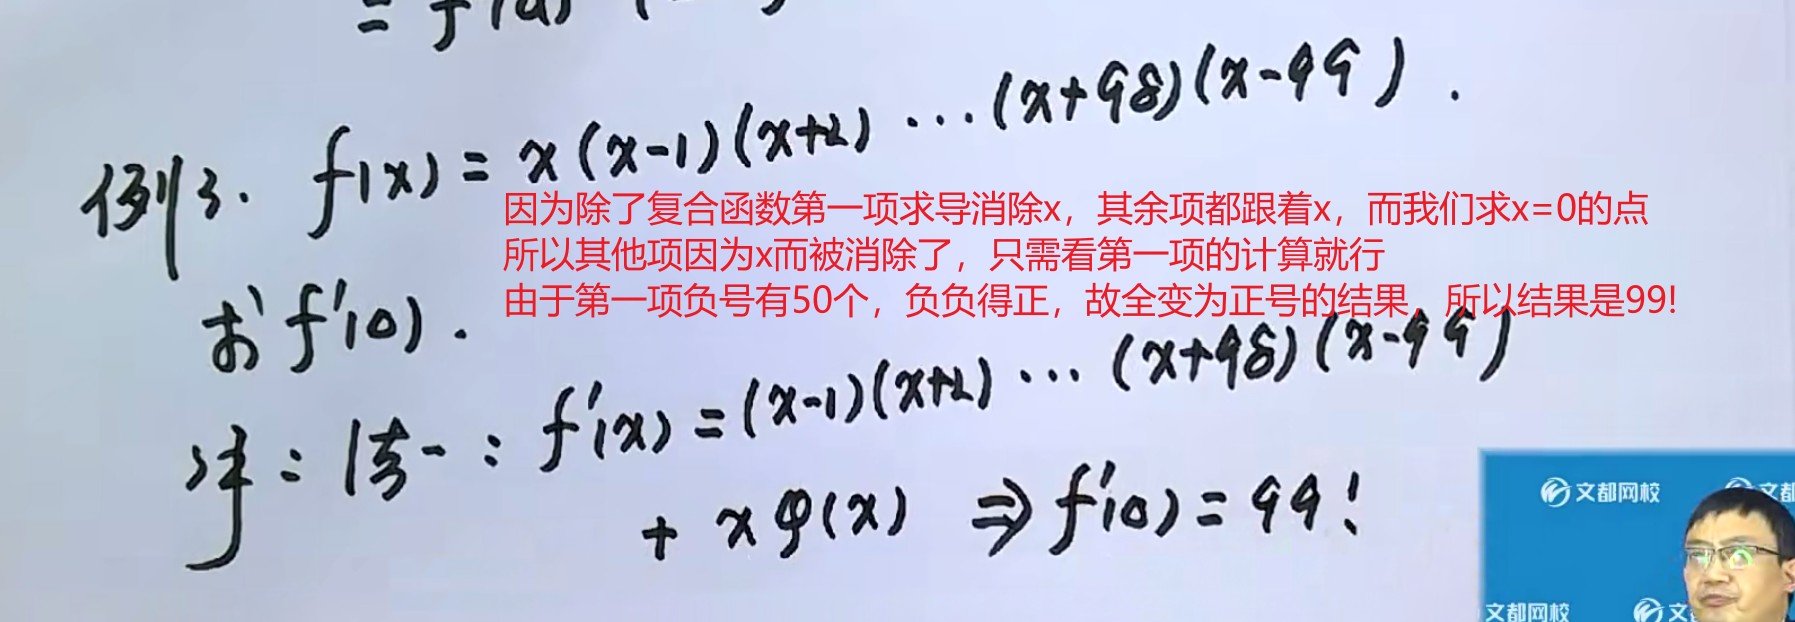 = f'(a)
例3. f(x) = x(x-1)(x+2) ⋯ (x+98)(x-99).
因为除了复合函数第一项求导消除x，其余项都跟着x，而我们求x=0的点
所以其他项因为x而被消除了，只需看第一项的计算就行
由于第一项负号有50个，负负得正，故全变为正号的结果，所以结果是99!
求 f'(0).
解：法一：f'(x) = (x-1)(x+2) ⋯ (x+98)(x-99)
+ xφ(x) ⇒ f'(0) = 99!
文都网校
文都
文都网校
文